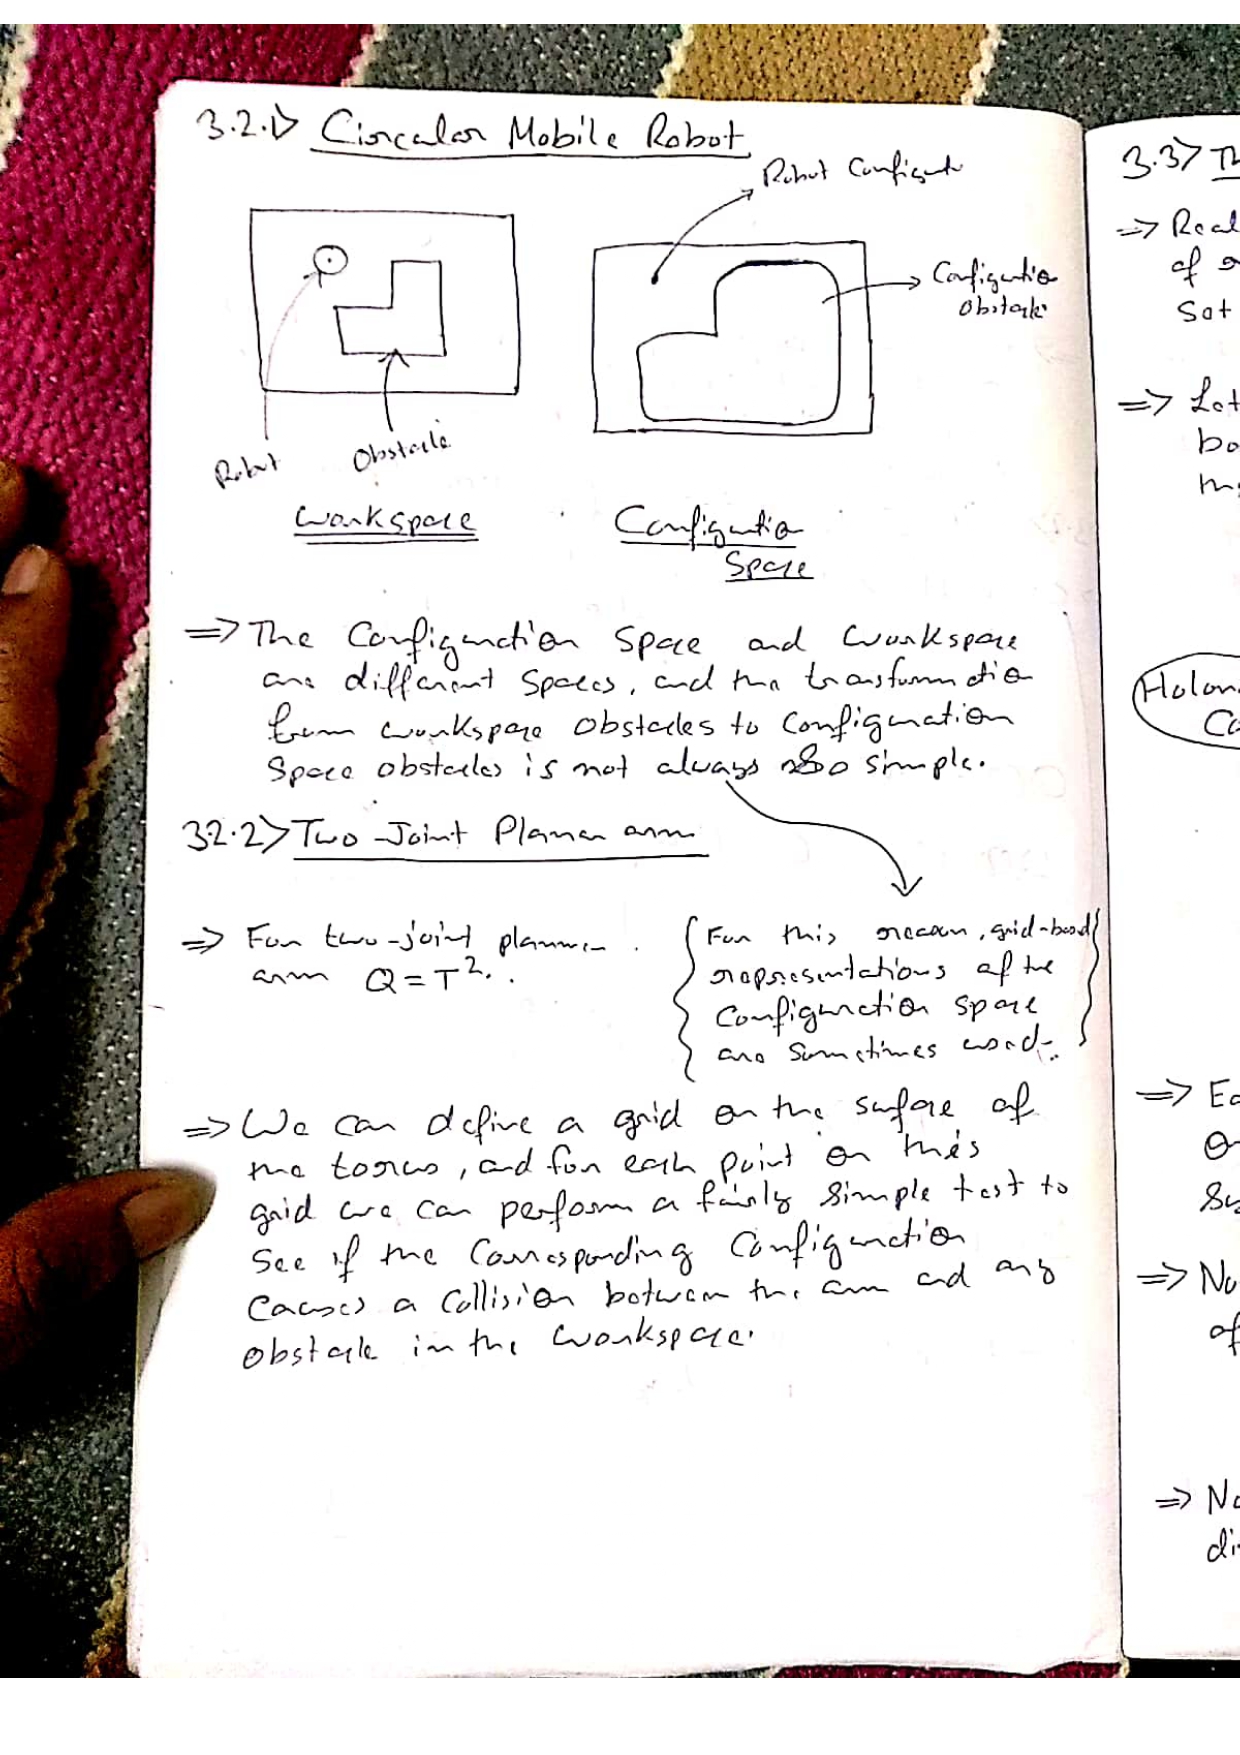 3.2.1> Circular Mobile Robot
Robot Configurat
Configuration
Obstacle
Robot
Obstacle
Workspace
Configuration
Space
=> The Configuration Space and Workspace
are different Spaces, and the transformation
from workspace obstacles to Configuration
Space obstacles is not always so simple.
3.2.2> Two-Joint Planar arm
=> For two-joint planar
arm Q = T².
For this reason, grid-based
representations of the
Configuration space
are Sometimes used.
=> We can define a grid on the surface of
the torus, and for each point on this
grid we can perform a fairly simple test to
See if the Corresponding Configuration
Causes a Collision between the arm and any
Obstacle in the workspace.
3.3>
=> Real
of
Sat
=> Let
=> No
of
=> No